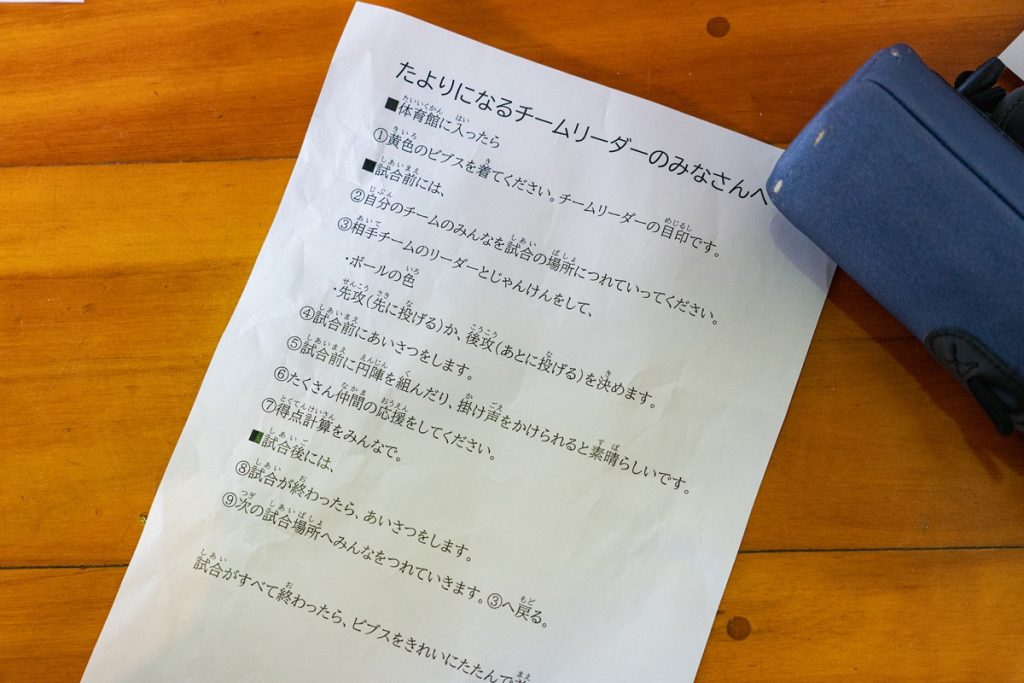 たよりになるチームリーダーのみなさんへ
■体育館に入ったら
①黄色のビブスを着てください。チームリーダーの目印です。
■試合前には、
②自分のチームのみんなを試合の場所につれていってください。
③相手チームのリーダーとじゃんけんをして、
・ボールの色
・先攻(先に投げる)か、後攻(あとに投げる)を決めます。
④試合前にあいさつをします。
⑤試合前に円陣を組んだり、掛け声をかけられると素晴らしいです。
⑥たくさん仲間の応援をしてください。
⑦得点計算をみんなで。
■試合後には、
⑧試合が終わったら、あいさつをします。
⑨次の試合場所へみんなをつれていきます。③へ戻る。
試合がすべて終わったら、ビブスをきれいにたたんで